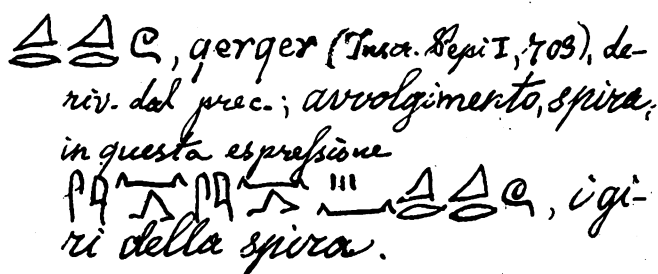 𓈎𓂋𓈎𓂋𓍢, qerqer (Inscr. Pepi I, 703), de-
riv. dal prec.; avvolgimento, spira;
in questa espressione
𓈎𓂋𓈎𓂋𓍢, i gi-
ri della spira.